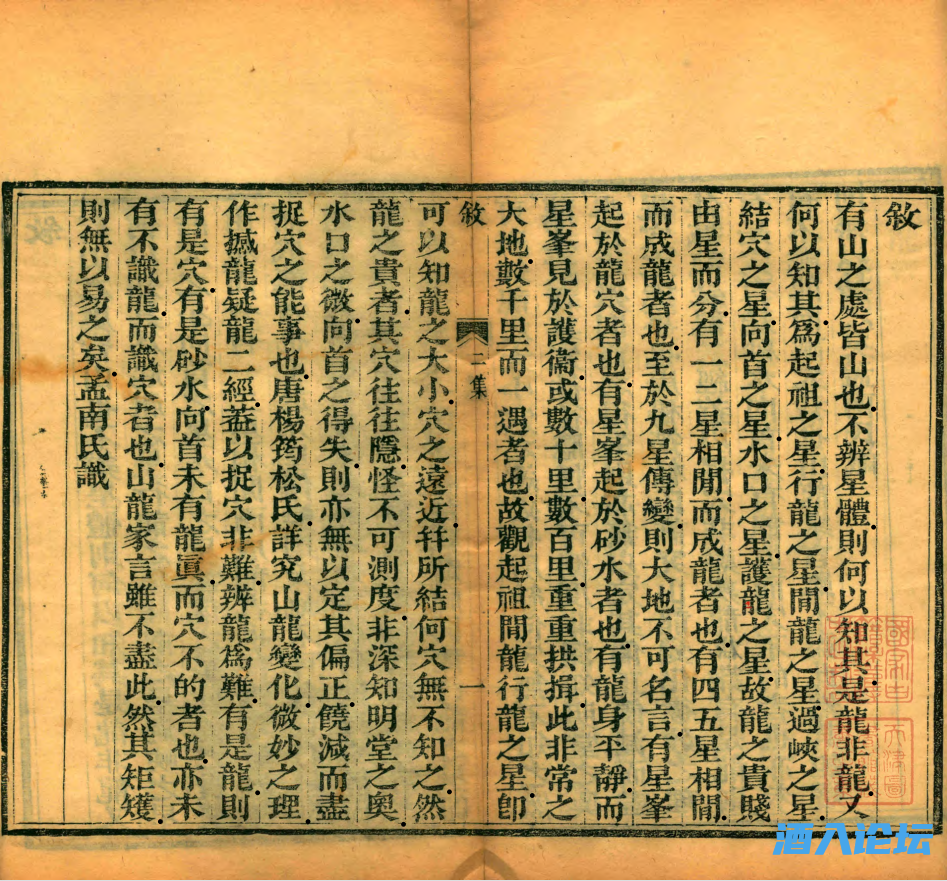 敘
有山之處皆山也不辨星體則何以知其是龍非龍又
何以知其爲起祖之星行龍之星閒龍之星過峽之星
結穴之星向首之星水口之星護龍之星故龍之貴賤
由星而分有一二星相閒而成龍者也有四五星相閒
而成龍者也至於九星傳變則大地不可名言有星峯
起於龍穴者也有星峯起於砂水者也有龍身平靜而
星峯見於護衞或數十里數百里重重拱揖此非常之
大地數千里而一遇者也故觀起祖閒龍行龍之星卽
敘 二集 一
可以知龍之大小穴之遠近幷所結何穴無不知之然
龍之貴者其穴往往隱怪不可測度非深知明堂之奧
水口之微向首之得失則亦無以定其偏正饒減而盡
捉穴之能事也唐楊筠松氏詳究山龍變化微妙之理
作撼龍疑龍二經蓋以捉穴非難辨龍爲難有是龍則
有是穴有是砂水向首未有龍眞而穴不的者也亦未
有不識龍而識穴者也山龍家言雖不盡此然其矩矱
則無以易之矣孟南氏識
酒入论坛